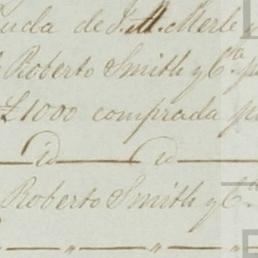 uda de J. M. Merle y
Roberto Smith y Cª. p
£1000 comprada p
id id
Roberto Smith y Cª.
" " "